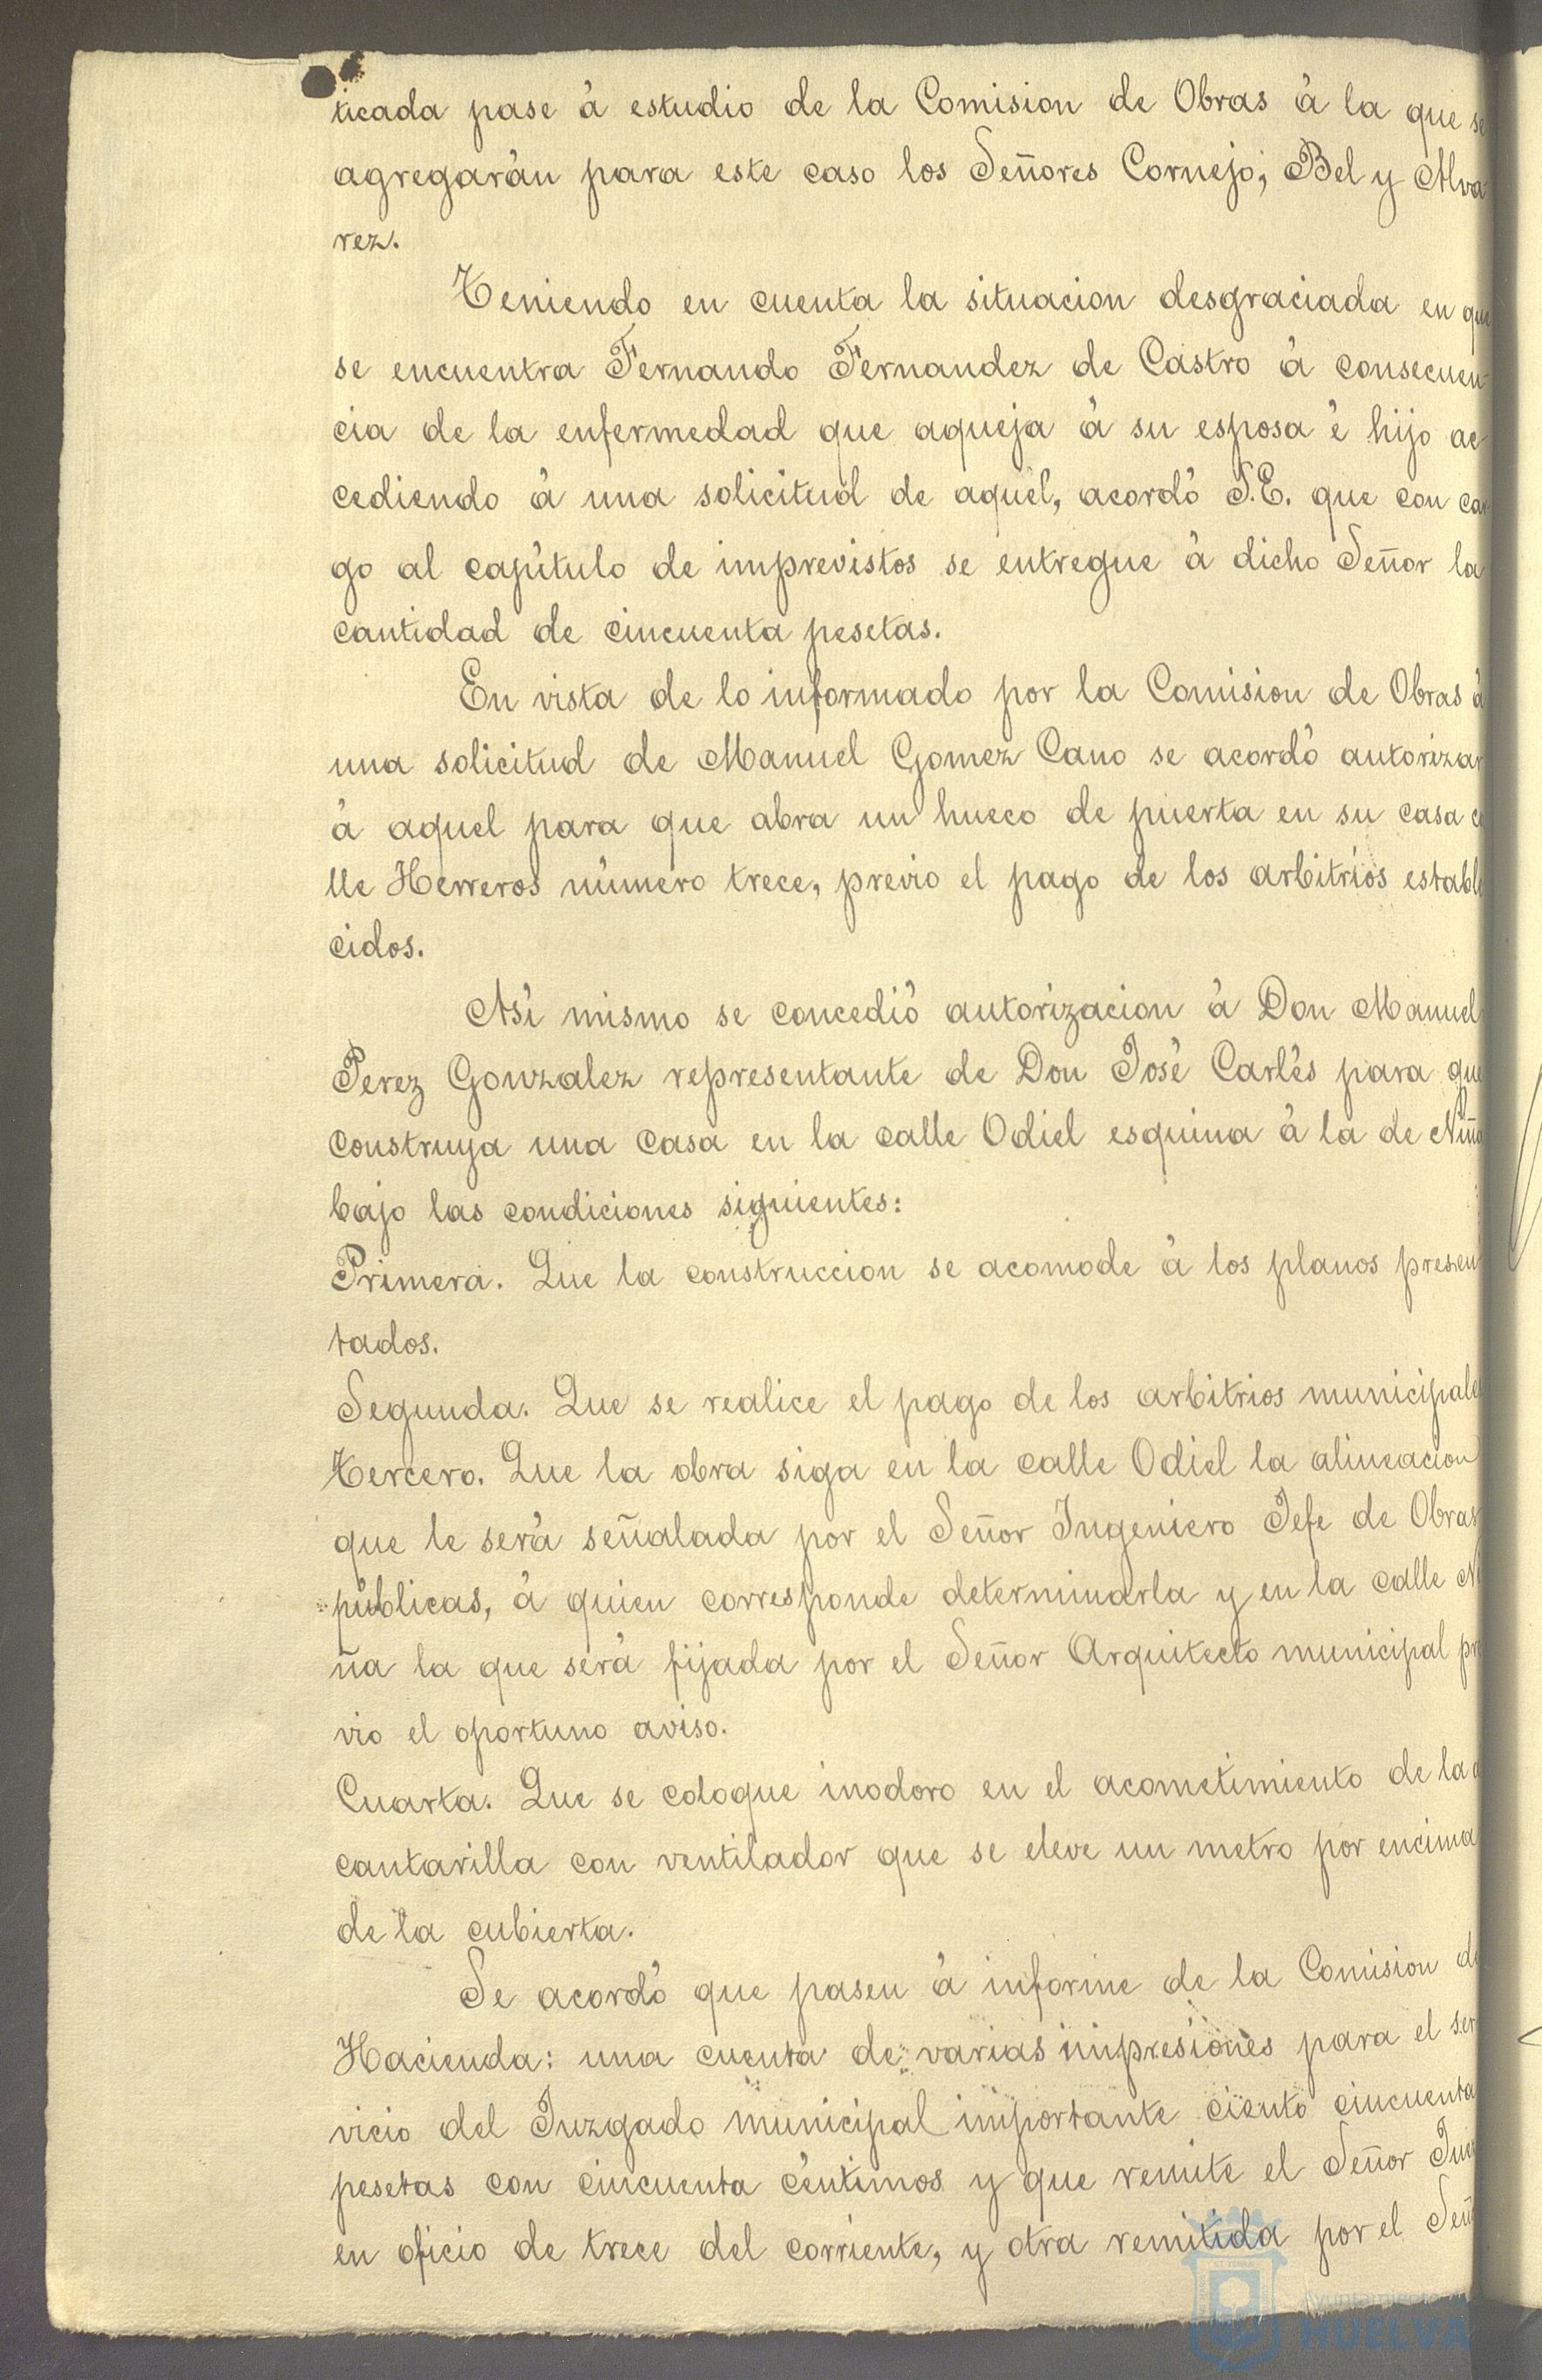 ticada pase á estudio de la Comision de Obras á la que se
agregarán para este caso los Señores Cornejo, Bel y Alva-
rez.
Teniendo en cuenta la situacion desgraciada en que
se encuentra Fernando Fernandez de Castro á consecuen-
cia de la enfermedad que aqueja á su esposa é hijo ac-
cediendo á una solicitud de aquél, acordó S.E. que con car
go al capítulo de imprevistos se entregue á dicho Señor la
cantidad de cincuenta pesetas.
En vista de lo informado por la Comision de Obras á
una solicitud de Manuel Gomez Cano se acordó autorizar
á aquel para que abra un hueco de puerta en su casa ca
lle Herreros número trece, previo el pago de los arbitrios estable
cidos.
Así mismo se concedió autorizacion á Don Manuel
Perez Gonzalez representante de Don José Carlés para que
construya una casa en la calle Odiel esquina á la de Niña
bajo las condiciones siguientes:
Primera. Que la construccion se acomode á los planos presen
tados.
Segunda. Que se realice el pago de los arbitrios municipales
Tercero. Que la obra siga en la calle Odiel la alineacion
que le será señalada por el Señor Ingeniero Jefe de Obras
públicas, á quien corresponde determinarla y en la calle Ni
ña la que será fijada por el Señor Arquitecto municipal pre
vio el oportuno aviso.
Cuarta. Que se coloque inodoro en el acometimiento de la a
cantarilla con ventilador que se eleve un metro por encima
de la cubierta.
Se acordó que pasen á informe de la Comision de
Hacienda: una cuenta de varias impresiones para el ser
vicio del Juzgado municipal importante ciento cincuenta
pesetas con cincuenta céntimos y que remite el Señor Juez
en oficio de trece del corriente, y otra remitida por el Señ
Ayuntamiento de
HUELVA